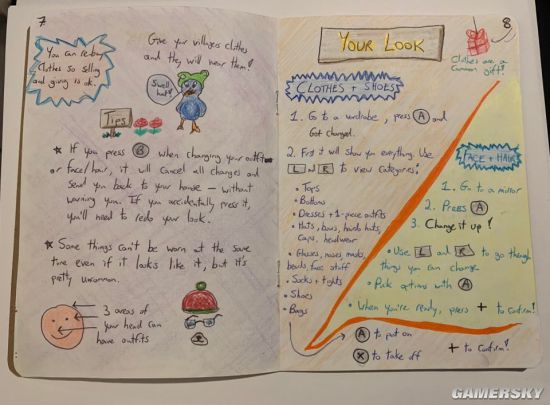 7
You can re-buy
clothes so selling
and giving is ok.
Give your villagers clothes
and they will wear them!
Swell
hat!
Tips
★ If you press B when changing your outfit
or face/hair, it will cancel all changes and
send you back to your house – without
warning you. If you accidentally press it,
you'll need to redo your look.
★ Some things can't be worn at the same
time even if it looks like it, but it's
pretty uncommon.
3 areas of
your head can
have outfits
8
YOUR LOOK
Clothes are a
common gift!
CLOTHES + SHOES
1. Go to a wardrobe, press A and
Get changed.
2. First it will show you everything. Use
L and R to view categories:
• Tops
• Bottoms
• Dresses + 1-piece outfits
• Hats, bows, hards hats,
caps, headwear
• Glasses, noses, masks,
beards, face stuff
• Socks + tights
• Shoes
• Bags
A to put on
X to take off
+ to confirm!
FACE + HAIR
1. Go to a mirror
2. Press A
3. Change it up!
• Use L and R to go through
things you can change
• Pick options with A
• When you're ready, press + to confirm!
GAMERSKY